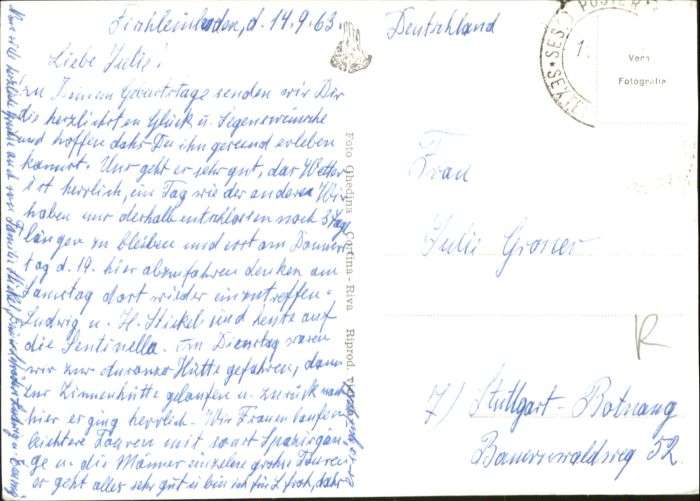 Fischleinboden, d. 14.9.63.
Liebe Julie!
Zu Deinem Geburtstage senden wir Dir
die herzlichsten Glück u. Segenswünsche
und hoffen dahs Du ihn gesund erleben
kannst. Uns geht es sehr gut, das Wetter
ist herrlich, ein Tag wie der andere. Wir
haben uns deshalb entschlossen noch 3 Tag
länger zu bleiben und erst am Donners
tag d. 19. hier abzufahren denken am
Samstag dort wieder einzutreffen.
Ludwig u. H. Stickel sind heute auf
die Sentinella. Am Dienstag waren
wir zur Auronzo Hütte gefahren, dann
zur Zinnenhütte gelaufen u. zurück nach
hier es ging herrlich. Wir Frauen laufen
leichtere Touren mit sonst Spaziergän-
ge u. die Männer einzelne grohse Touren,
es geht alles sehr gut u. bin ich für L. froh, dahs
Nun viele herzliche Grühse auch von Familie Stickel
Foto Ghedina Cortina-Riva Riprod.
Deutschland
SESTO
SEXTEN
Vera
Fotografia
Frau
Julie Groner
R
7) Stuttgart-Botnang
Bauernwaldweg 52